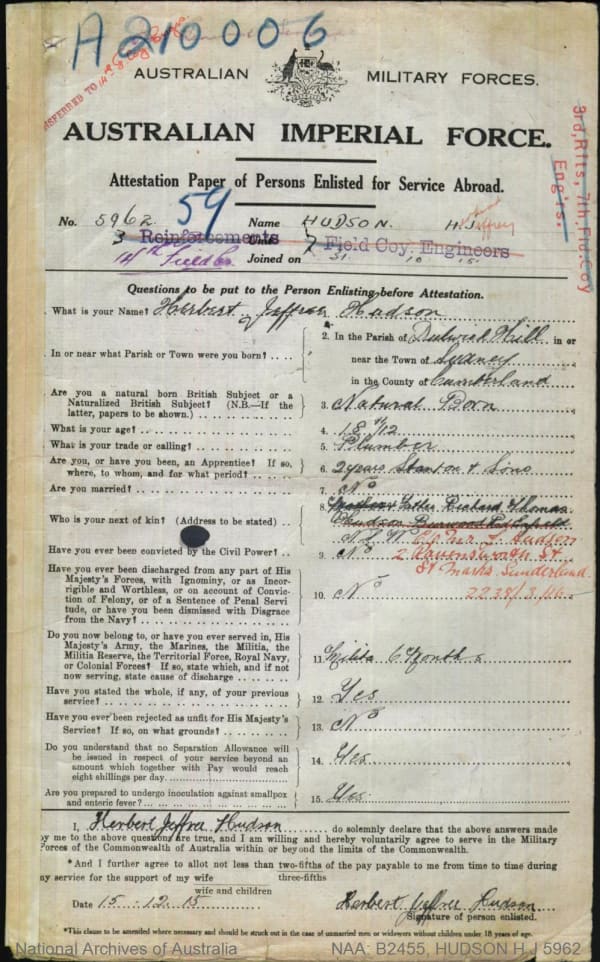 A210006
AUSTRALIAN MILITARY FORCES.
TRANSFERRED TO
AUSTRALIAN IMPERIAL FORCE.
3rd, Rfts, 7th, Fld. Coy
Engrs.
Attestation Paper of Persons Enlisted for Service Abroad.
No. 5962 59 Name HUDSON. H.J. Jeffrey
3 Reinforcements Unit 7 Field Coy. Engineers
14th Field Co Joined on 31 10 15
Questions to be put to the Person Enlisting before Attestation.
1. What is your Name? Herbert Jeffree Hudson
2. In the Parish of Dulwich Hill in or
In or near what Parish or Town were you born? near the Town of Sydney
in the County of Cumberland
Are you a natural born British Subject or a
Naturalized British Subject? (N.B.—If the
latter, papers to be shown.) 3. Natural Born
What is your age? 4. 18 /12
What is your trade or calling? 5. Plumber
Are you, or have you been, an Apprentice? If so,
where, to whom, and for what period? 6. 2 years Stanton & Sons
Are you married? 7. No
8. Father Richard Thomas
Who is your next of kin? (Address to be stated) Hudson Burwood Rd Enfield
N.S.W. Hudson
Have you ever been convicted by the Civil Power? 9. No 2 St
St Marks Sunderland
Have you ever been discharged from any part of His
Majesty's Forces, with Ignominy, or as Incor-
rigible and Worthless, or on account of Convic-
tion of Felony, or of a Sentence of Penal Servi
tude, or have you been Dismissed with Disgrace
from the Navy? 10. No
Do you now belong to, or have you ever served in, His
Majesty's Army, the Marines, the Militia, the
Militia Reserve, the Territorial Force, Royal Navy,
or Colonial Forces? If so, state which, and if not
now serving, state cause of discharge 11. Militia 6 Months
Have you stated the whole, if any, of your previous
service? 12. Yes
Have you ever been rejected as unfit for His Majesty's
Service? If so, on what grounds? 13. No
Do you understand that no Separation Allowance will
be issued in respect of your service beyond an
amount which together with Pay would reach
eight shillings per day. 14. Yes
Are you prepared to undergo inoculation against smallpox
and enteric fever? 15. Yes
I, Herbert Jeffree Hudson do solemnly declare that the above answers made
by me to the above questions are true, and I am willing and hereby voluntarily agree to serve in the Military
Forces of the Commonwealth of Australia within or beyond the limits of the Commonwealth.
*And I further agree to allot not less than two-fifths of the pay payable to me from time to time during
my service for the support of my wife three-fifths
wife and children
Date 15.12.15 Herbert Jeffree Hudson
Signature of person enlisted.
*This clause to be amended where necessary and should be struck out in the case of unmarried men or widowers without children under 18 years of age.
National Archives of Australia NAA: B2455, HUDSON H J 5962